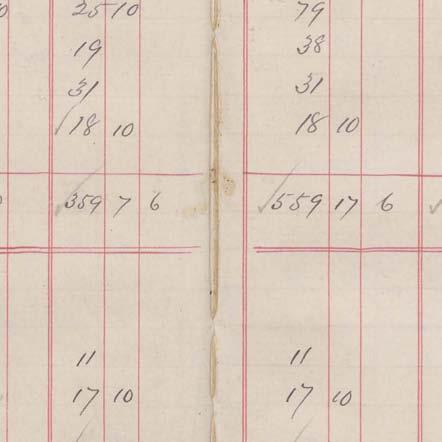 25 10 79
19 38
31 31
18 10 18 10
359 7 6 559 17 6
11 11
17 10 17 10